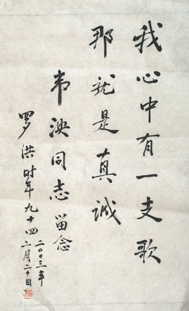 我心中有一支歌
那就是真诚
韦泱同志留念
罗洪时年九十四
二〇〇三年
二月二十日